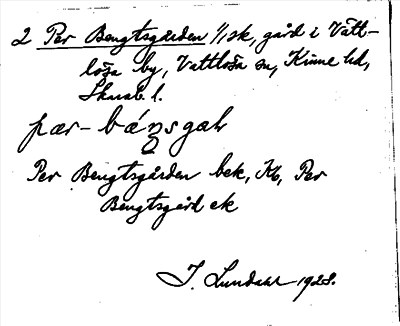 2 Per Bengtsgården 1/1 sk, gård i Vätt-
lösa by, Vättlösa sn, Kinne hd,
Skarab. l.
pær-báŋsgaɫ
Per Bengtsgården bek, Kb, Per
Bengtsgård ek
J. Lundahl 1928.